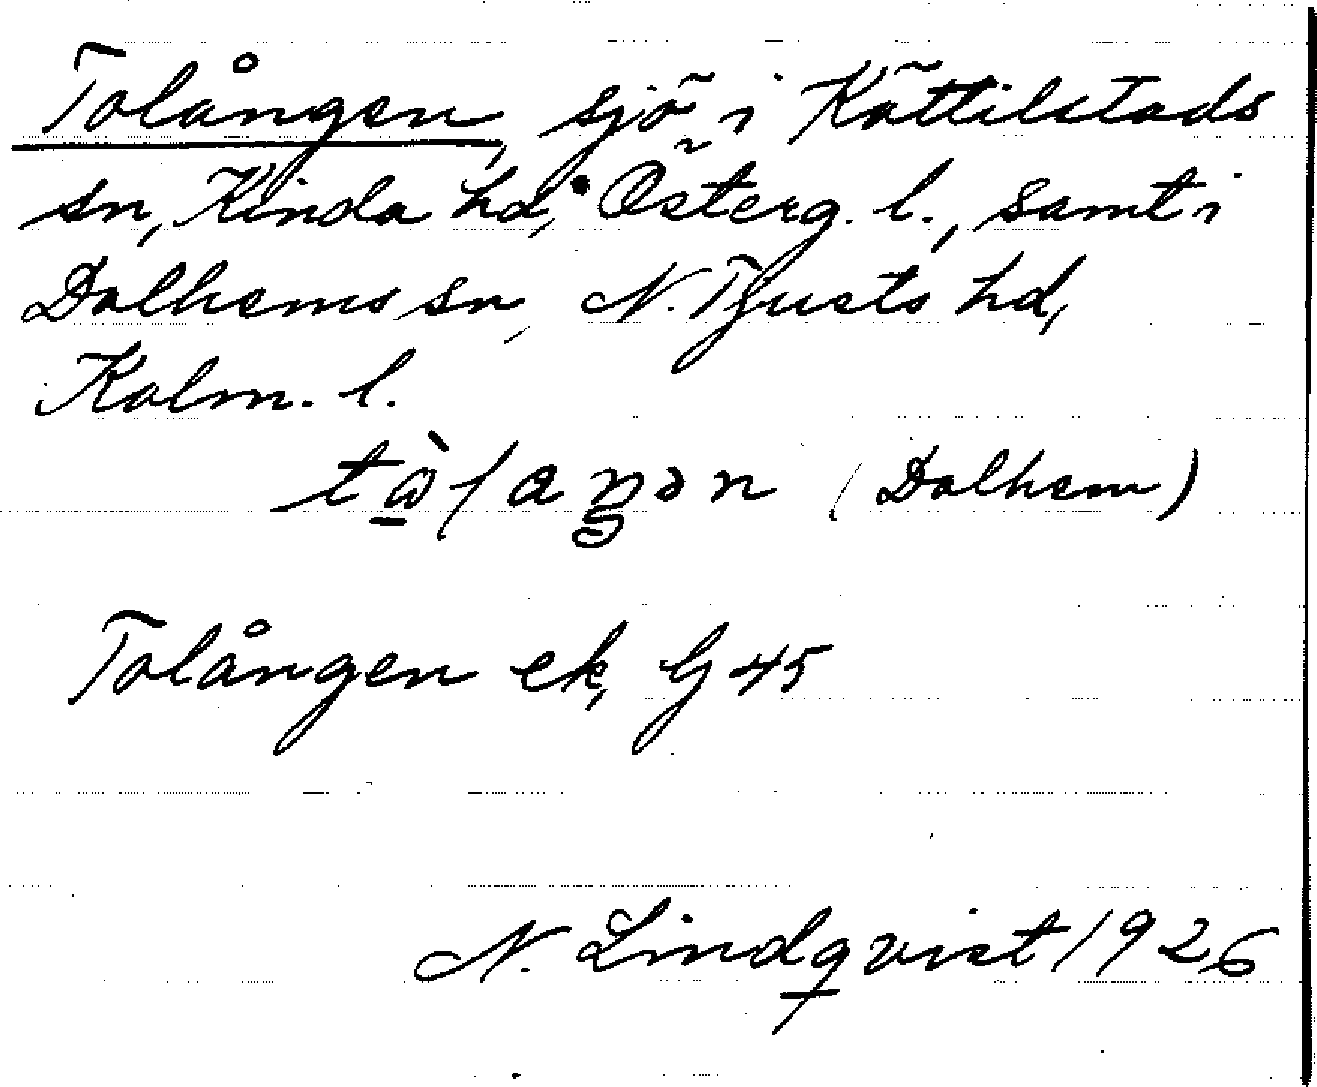 Tolången, sjö i Kättilstads
sn, Kinda hd, Österg. l., samt i
Dalhems sn, N. Tjusts hd,
Kalm. l.
(Dalhem)
Tolången ek, G 45
N. Lindqvist 1926